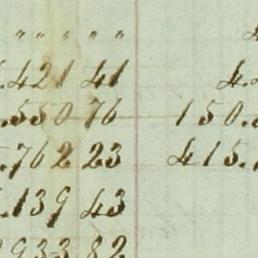 " " " " " 4
.421 41 4.
.550 76 150.
.762 23 415.
.139 43
933 82